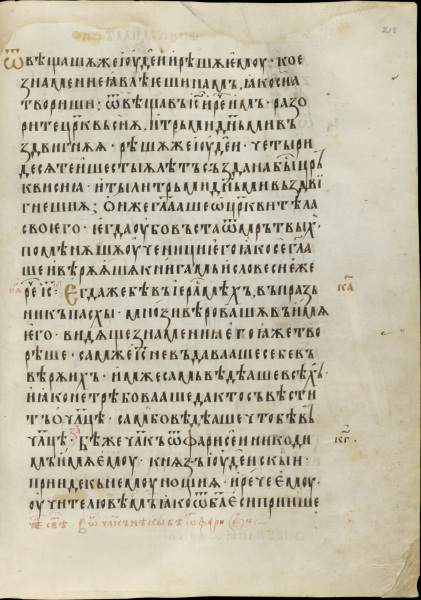 ѿвѣщашѧжеіоудѣиирѣшѧемоу· кое
знамениеꙗвлꙗешинамъ, ꙗкосиꙗ
твориши; ѿвѣщавъі҃сиреи҅мъ· разо
ритецр҃квьсиѧ, итрьмидн҃ьмивъ
здвигнѧѧ· рѣшѧжеіоудеи· четыри
десѧтеишестыѧлѣтъсъзданабы҃цр҃ь
квисиꙗ· итылитрьмидн҃ьмивьздви
гнешиѧ; онжегл҃аашеѡцр҃квитѣла
своего· ꙗгдаоубовъстаѿмрътвых·
помѣнѧшѧоученициегоꙗкосегла
шеивѣрѧшѧкнигамьисловесиеже
реі҃с· Егдажебѣвъіерл҃мѣхъ, въпразь
никъпасхы· мноѕивѣровашѧвъимѧ
его· видѧщезнамениꙗегоꙗжетво
рѣше· самжеі҃сневъдаваашесебевъ
вѣрѧихъ· имжесамъвѣдѣашевсѣхъ·
иꙗконетрѣбовашедактосъвѣсти
тъоч҃лцѣ· самбовѣдѣашечтобѣвь
ч҃лцѣ· Бѣжеч҃лкъѿфарисеиникоди
мъимѧемоу· кнѧзъіоудеискыи·
приидекънемоунощиѧ· иречеемоу·
оучителювѣмъꙗкоѿб҃аесипришѣ